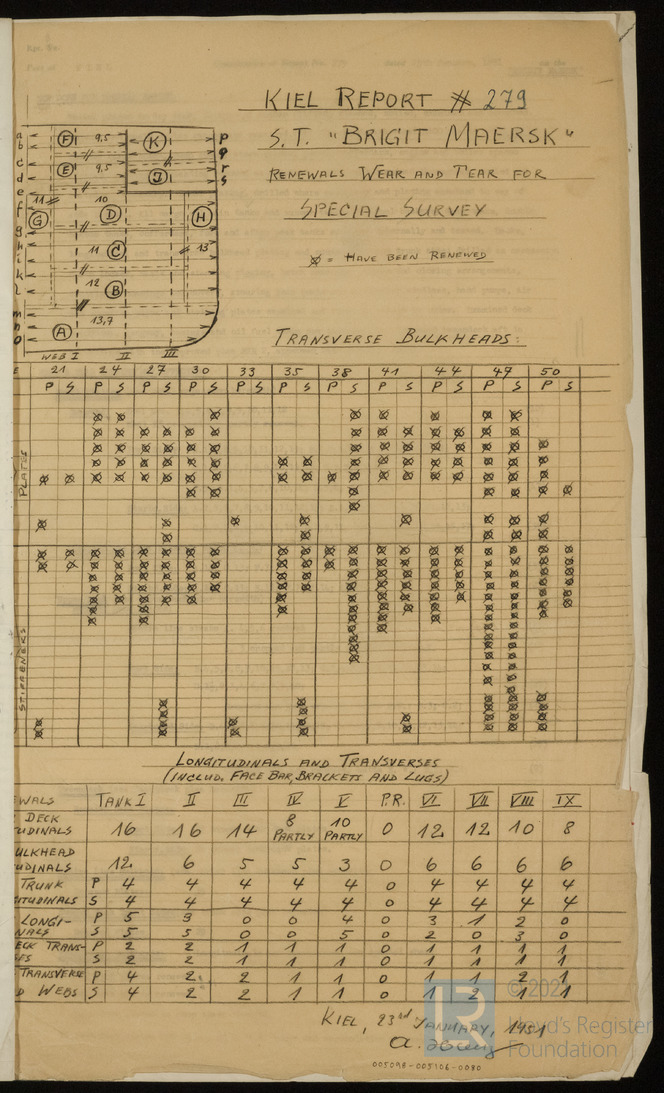 KIEL REPORT # 279
S.T. "BRIGIT MAERSK"
RENEWALS WEAR AND TEAR FOR
SPECIAL SURVEY
= HAVE BEEN RENEWED
TRANSVERSE BULKHEADS:
a F 9,5 K p
b q
c E 9,5 J r
d s
e
f 11 10
G D H
g
h 11 C 13
i
k
l 12 B
m 13,7
n A
o
WEB I II III
21 24 27 30 33 35 38 41 44 47 50
P S P S P S P S P S P S P S P S P S P S P S
PLATES
STIFFENERS
LONGITUDINALS AND TRANSVERSES
(INCLUD. FACE BAR, BRACKETS AND LUGS)
EWALS TANK I II III IV V P.R. VI VII VIII IX
DECK
UDINALS 16 16 14 8 PARTLY 10 PARTLY 0 12 12 10 8
ULKHEAD
UDINALS 12 6 5 5 3 0 6 6 6 6
TRUNK P 4 4 4 4 4 0 4 4 4 4
ITUDINALS S 4 4 4 4 4 0 4 4 4 4
LONGI- P 5 0 0 4 0 3 1 2 0
NALS S 5 5 0 0 5 0 2 0 3 0
ECK TRANS- P 2 2 1 1 1 0 1 1 1 1
SES S 2 2 1 1 1 0 1 1 1 1
TRANSVERSE P 4 2 2 1 1 0 1 1 2 1
D WEBS S 4 2 2 1 1 0 1 2 1 1
KIEL, 23rd JANUARY, 1951
005098-005106-0080
Lloyd's Register
Foundation